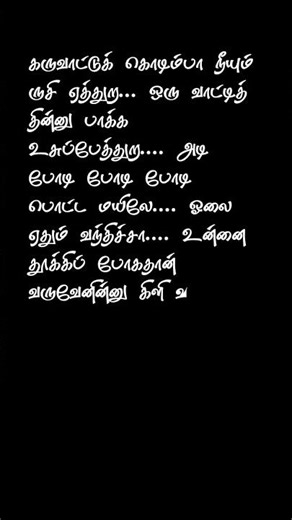 கருவாட்டுக் கொடிம்பா நீயும்
ருசி ஏத்துற... ஒரு வாட்டித்
தின்னு பாக்க
உசுப்பேத்துற.... அடி
போடி போடி போடி
பொட்ட மயிலே.... ஓலை
ஏதும் வந்திச்சா.... உன்னை
தூக்கிப் போகதான்
வருவேனின்னு கிளி வ